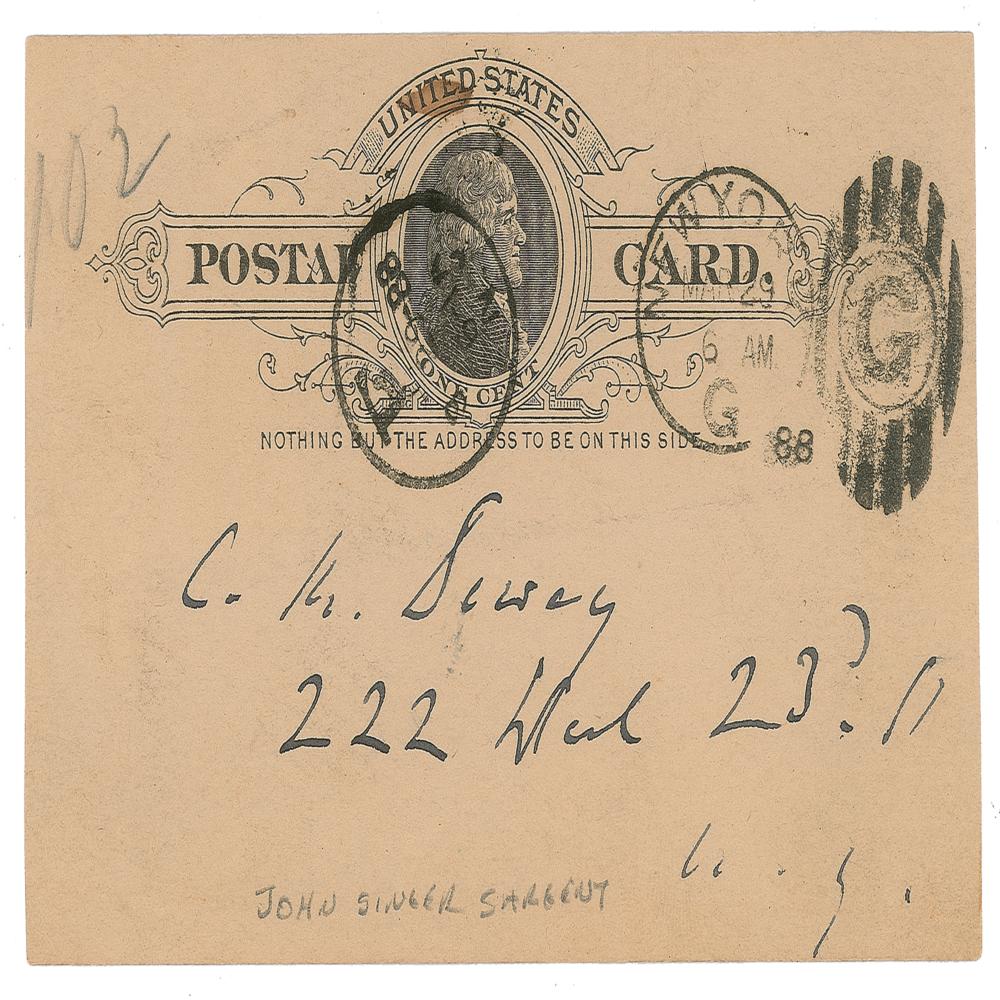 102
UNITED STATES
POSTAL CARD.
ONE CENT
NOTHING BUT THE ADDRESS TO BE ON THIS SIDE
NEW YORK
MAR 29
6 AM
G
88
G
88
C. M. Dewey
222 West 23d.
N. Y.
JOHN SINGER SARGENT